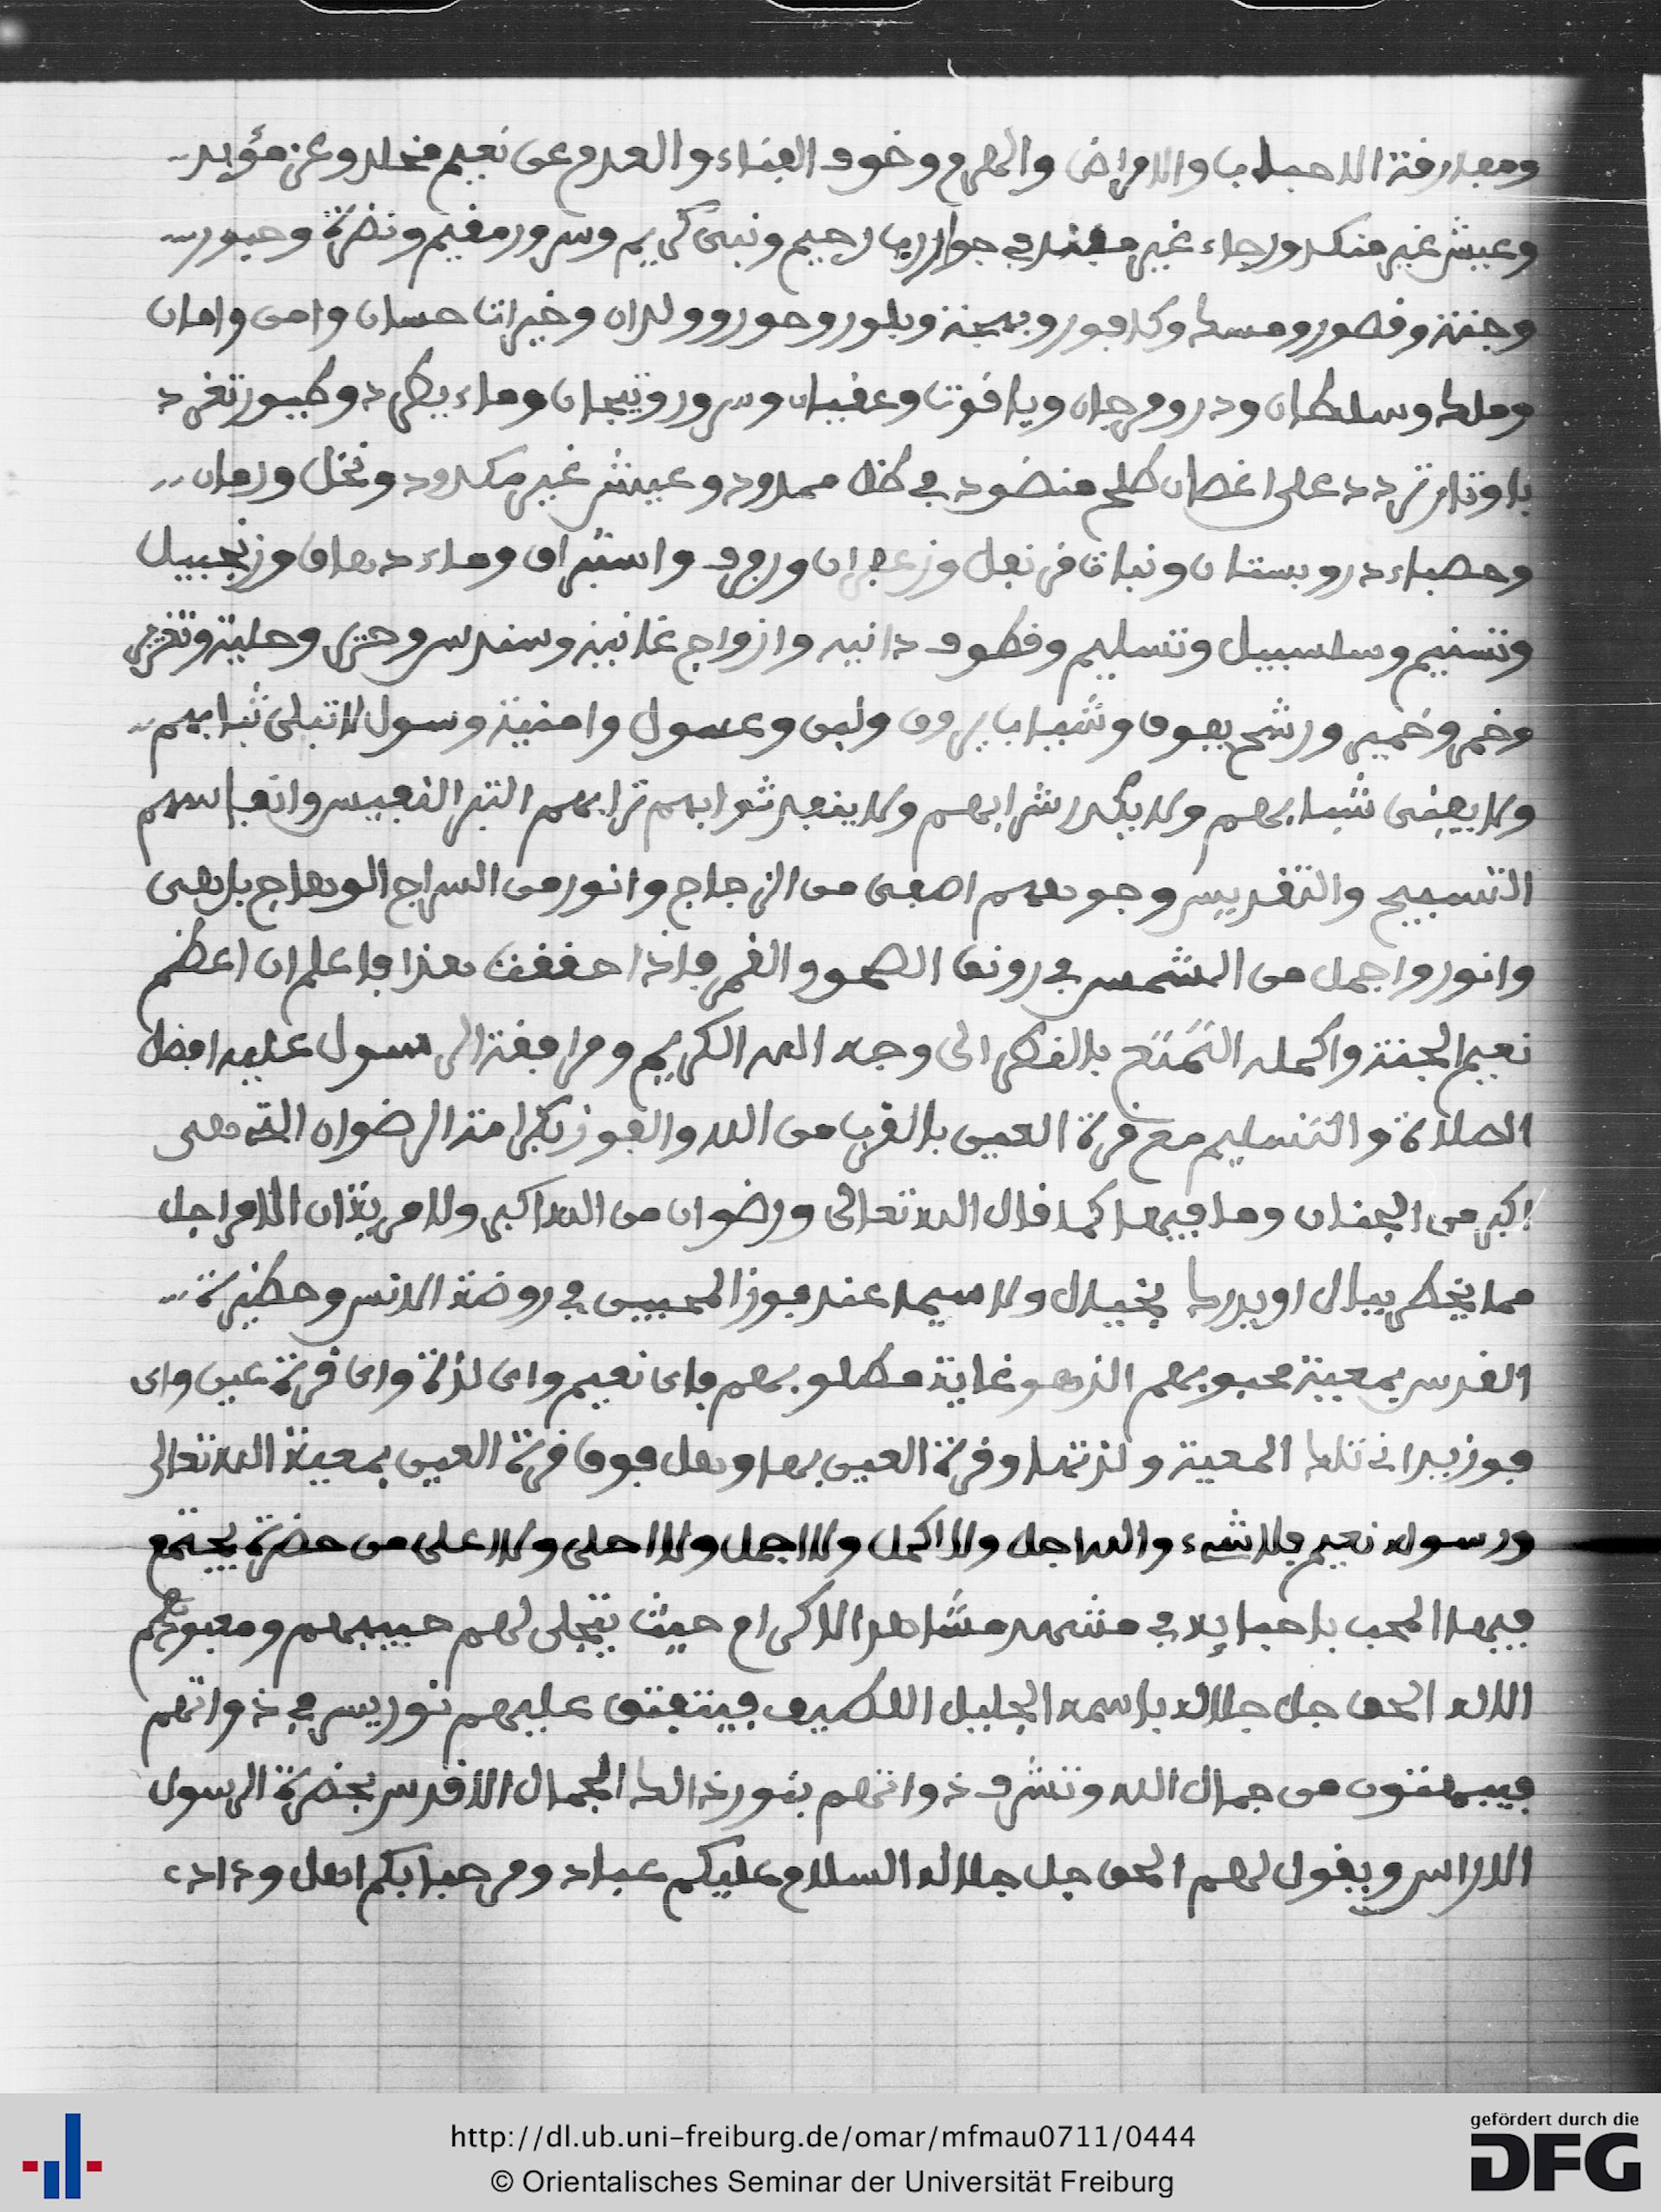 ومفارقة الاحباب والامراض والهرم وخوف الفناء والعدم عن نعيم مخلد وعز مؤبد
وعيش غير منكد ورجاء غير مفند في جوار رب رحيم ونبي كريم وسرور مقيم ونضرة وحبور
وجنة وقصور ومسك وكافور وبهجة وبلور وحور وولدان وخيرات حسان وامن وامان
وملك وسلطان ودر ومرجان وياقوت وعقيان وسرور وتيجان وماء يطرد وطيور تغرد
باوتار تردد على اغصان طلح منضود في ظل ممدود وعيش غير مكدود ونخل ورمان
وحصباء در وبستان ونبات قرنفل وزعفران ورفرف واستبراق وماء دهاق وزنجبيل
وتسنيم وسلسبيل وتسليم وقطوف دانيه وازواج غانية وسندس وحرير وحلية وتغرير
وخمر وخمير ورشح يفوق وشباب يروق ولبن وعسول وامنية وسول لا تبلى ثيابهم
ولا يفنى شبابهم ولا يكدر شرابهم ولا ينفد ثوابهم ترابهم التبر النفيس وانفاسهم
التسبيح والتقديس وجوههم اصفى من الزجاج وانور من السراج الوهاج بل هى
وانور واجمل من الشمس في رونق الصحو والقمر فاذا حققت هذا فاعلم ان اعظم
نعيم الجنة واكمله التمتع بالنظر الى وجه الله الكريم ومرافقة الرسول عليه افضل
الصلاة والتسليم مع قرة العين بالقرب من الله والفوز بكرامة الرضوان التي هي
اكبر من الجنان وما فيها كما قال الله تعالى ورضوان من الله اكبر ولا مرية ان الامر اجل
مما يخطر ببال او يدرك بخيال ولا سيما عند فوز المحبين في روضة الانس وحظيرة
القدس بمعية محبوبهم الذي هو غاية مطلوبهم فاى نعيم واى لذة واى قرة عين واى
فوز يدانى تلك المعية ولذتها وقرة العين بها وهل فوق قرة العين بمعية الله تعالى
ورسوله نعيم فلا شيء والله اجل ولا اكمل ولا اجمل ولا احلى ولا اعلى من حضرة يجتمع
فيها المحب باحبابه في مشهد مشاهد الاكرام حيث يتجلى لهم حبيبهم ومعبودهم
الاله الحق جل جلاله باسمه الجليل اللطيف فينفتق عليهم نور يسرى في ذواتهم
فيبهتون من جمال الله وتشرف ذواتهم بنور ذالك الجمال الاقدس بحضرة الرسول
الاراس ويقول لهم الحق جل جلاله السلام عليكم عباد ومرحبا بكم اهل ودادى
http://dl.ub.uni-freiburg.de/omar/mfmau0711/0444
© Orientalisches Seminar der Universität Freiburg
gefördert durch die
DFG